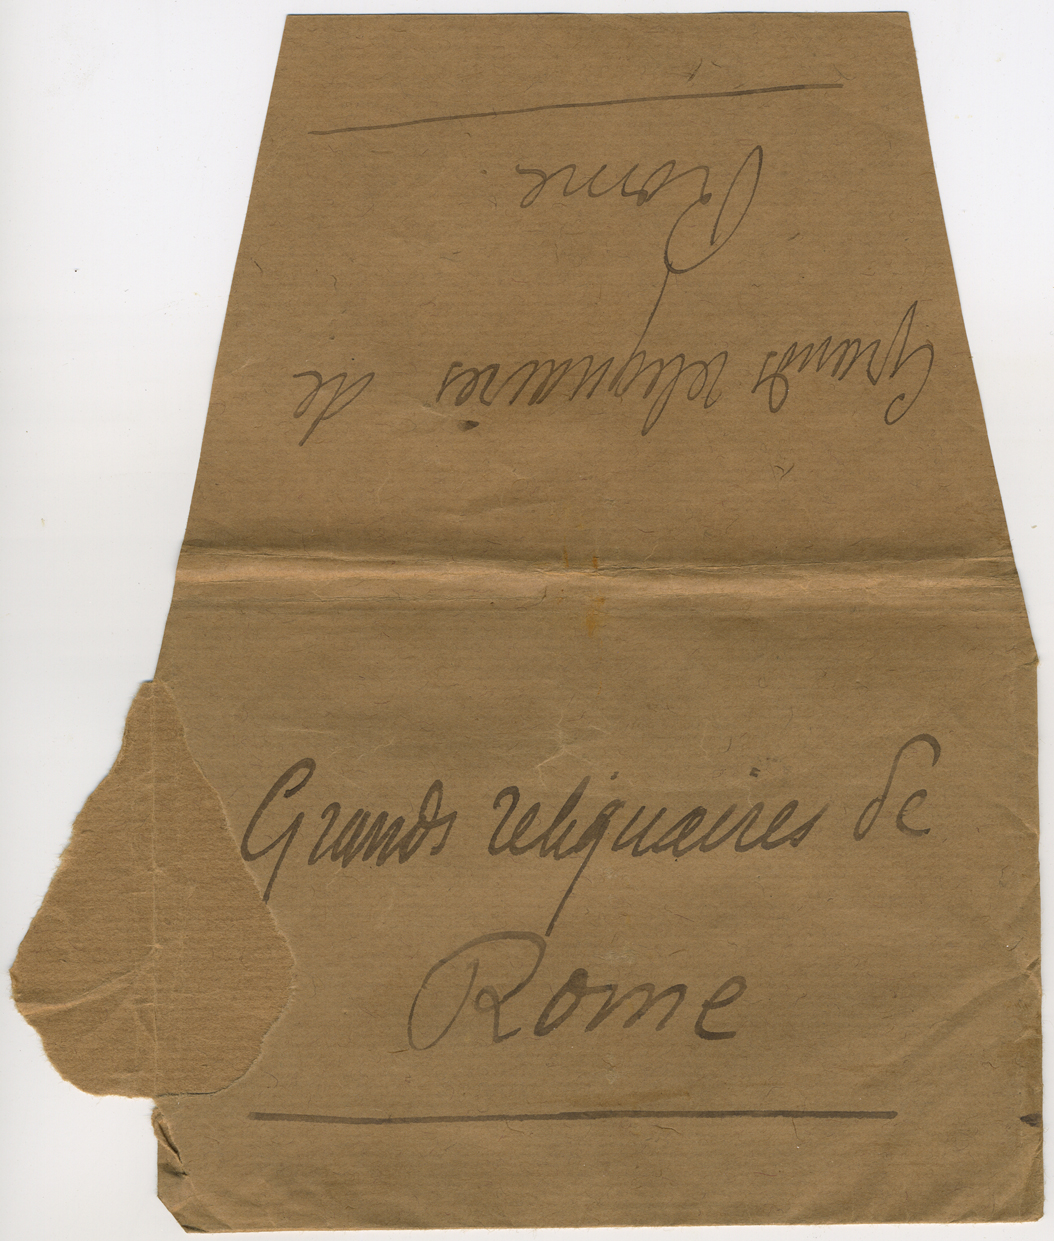 Grands reliquaires de
Rome
Grands reliquaires de
Rome